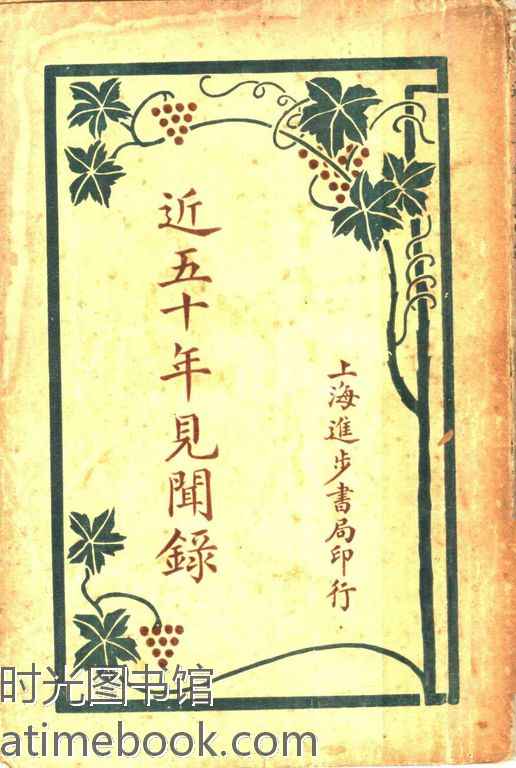 近五十年見聞錄
上海進步書局印行
时光图书馆
atimebook.com